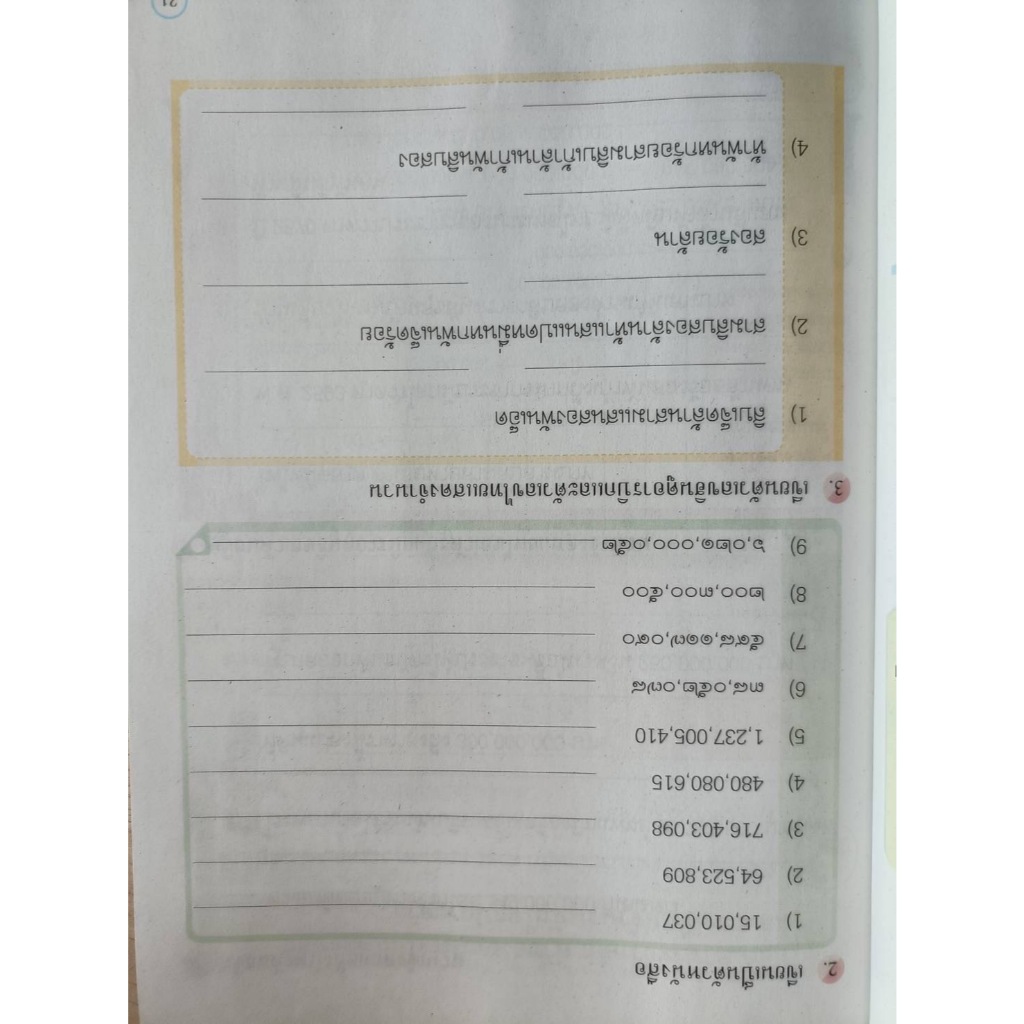 2. เขียนเป็นตัวหนังสือ
1) 15,010,037
2) 64,523,809
3) 716,403,098
4) 480,080,615
5) 1,237,005,410
6) ๓๘,๐๕๒,๐๗๘
7) ๕๙๘,๑๑๗,๐๙๐
8) ๒๐๐,๓๐๐,๕๐๐
9) ๖,๐๒๑,๐๐๐,๐๕๒
3. เขียนตัวเลขฮินดูอารบิกและตัวเลขไทยแสดงจำนวน
1) สิบเจ็ดล้านสามแสนสองพันเอ็ด
2) สามสิบสองล้านห้าแสนแปดหมื่นหกพันเจ็ดร้อย
3) สองร้อยล้าน
4) ห้าพันหกร้อยสามสิบเก้าล้านเก้าพันสิบสอง
21